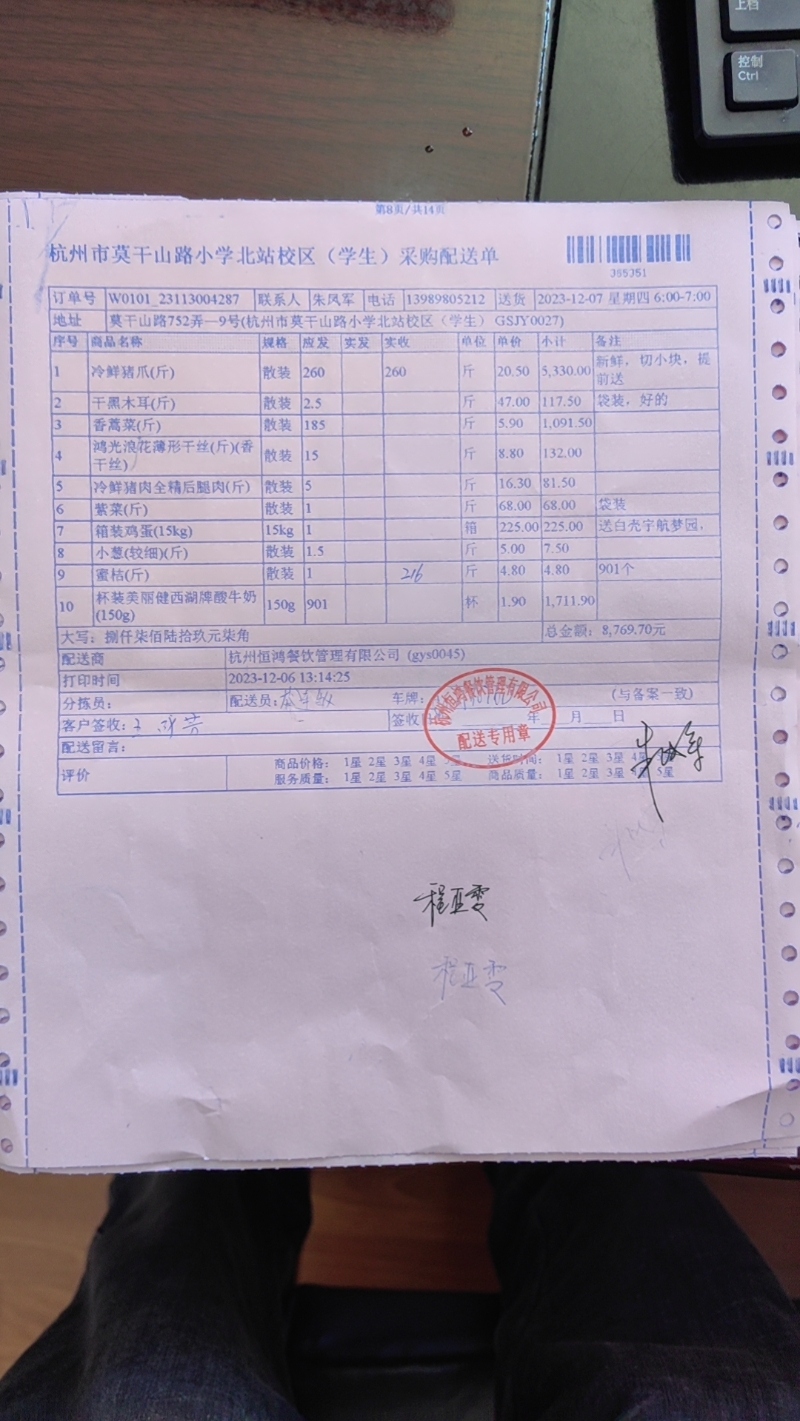 上档
控制
Ctrl
第8页/共14页
杭州市莫干山路小学北站校区（学生）采购配送单
395351
订单号 W0101_23113004287 联系人 朱凤军 电话 13989805212 送货 2023-12-07 星期四 6:00-7:00
地址 莫干山路752弄—9号(杭州市莫干山路小学北站校区（学生） GSJY0027)
序号 商品名称 规格 应发 实发 实收 单位 单价 小计 备注
1 冷鲜猪爪(斤) 散装 260 260 斤 20.50 5,330.00 新鲜，切小块，提前送
2 干黑木耳(斤) 散装 2.5 斤 47.00 117.50 袋装，好的
3 香蒿菜(斤) 散装 185 斤 5.90 1,091.50
4 鸿光浪花薄形干丝(斤)(香干丝) 散装 15 斤 8.80 132.00
5 冷鲜猪肉全精后腿肉(斤) 散装 5 斤 16.30 81.50
6 紫菜(斤) 散装 1 斤 68.00 68.00 袋装
7 箱装鸡蛋(15kg) 15kg 1 箱 225.00 225.00 送白壳宇航梦园，
8 小葱(较细)(斤) 散装 1.5 斤 5.00 7.50
9 蜜桔(斤) 散装 1 216 斤 4.80 4.80 901个
10 杯装美丽健西湖牌酸牛奶(150g) 150g 901 杯 1.90 1,711.90
大写：捌仟柒佰陆拾玖元柒角 总金额：8,769.70元
配送商 杭州恒鸿餐饮管理有限公司 (gys0045)
打印时间 2023-12-06 13:14:25
分拣员： 配送员： 车牌： (与备案一致)
客户签收： 签收 年 月 日
杭州恒鸿餐饮管理有限公司
配送专用章
配送留言：
评价 商品价格： 1星 2星 3星 4星 5星 送货时间： 1星 2星 3星 4星
服务质量： 1星 2星 3星 4星 5星 商品质量： 1星 2星 3星 4星 5星
程亚雯
程亚雯